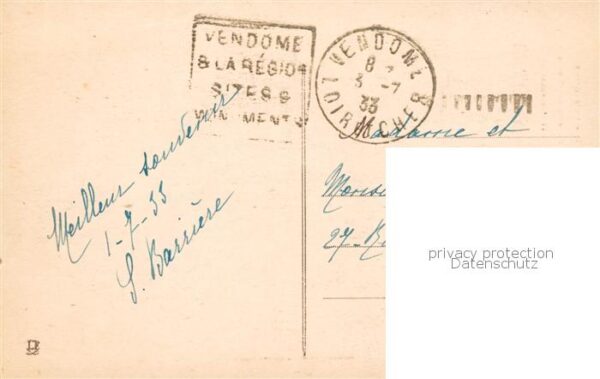 VENDOME
& LA RÉGION
SITES &
MONUMENTS
VENDOME
LOIR & CHER
8
3 -7
33
Meilleur souvenir
1-7-33
S. Barrière
Madame et
27
privacy protection
Datenschutz